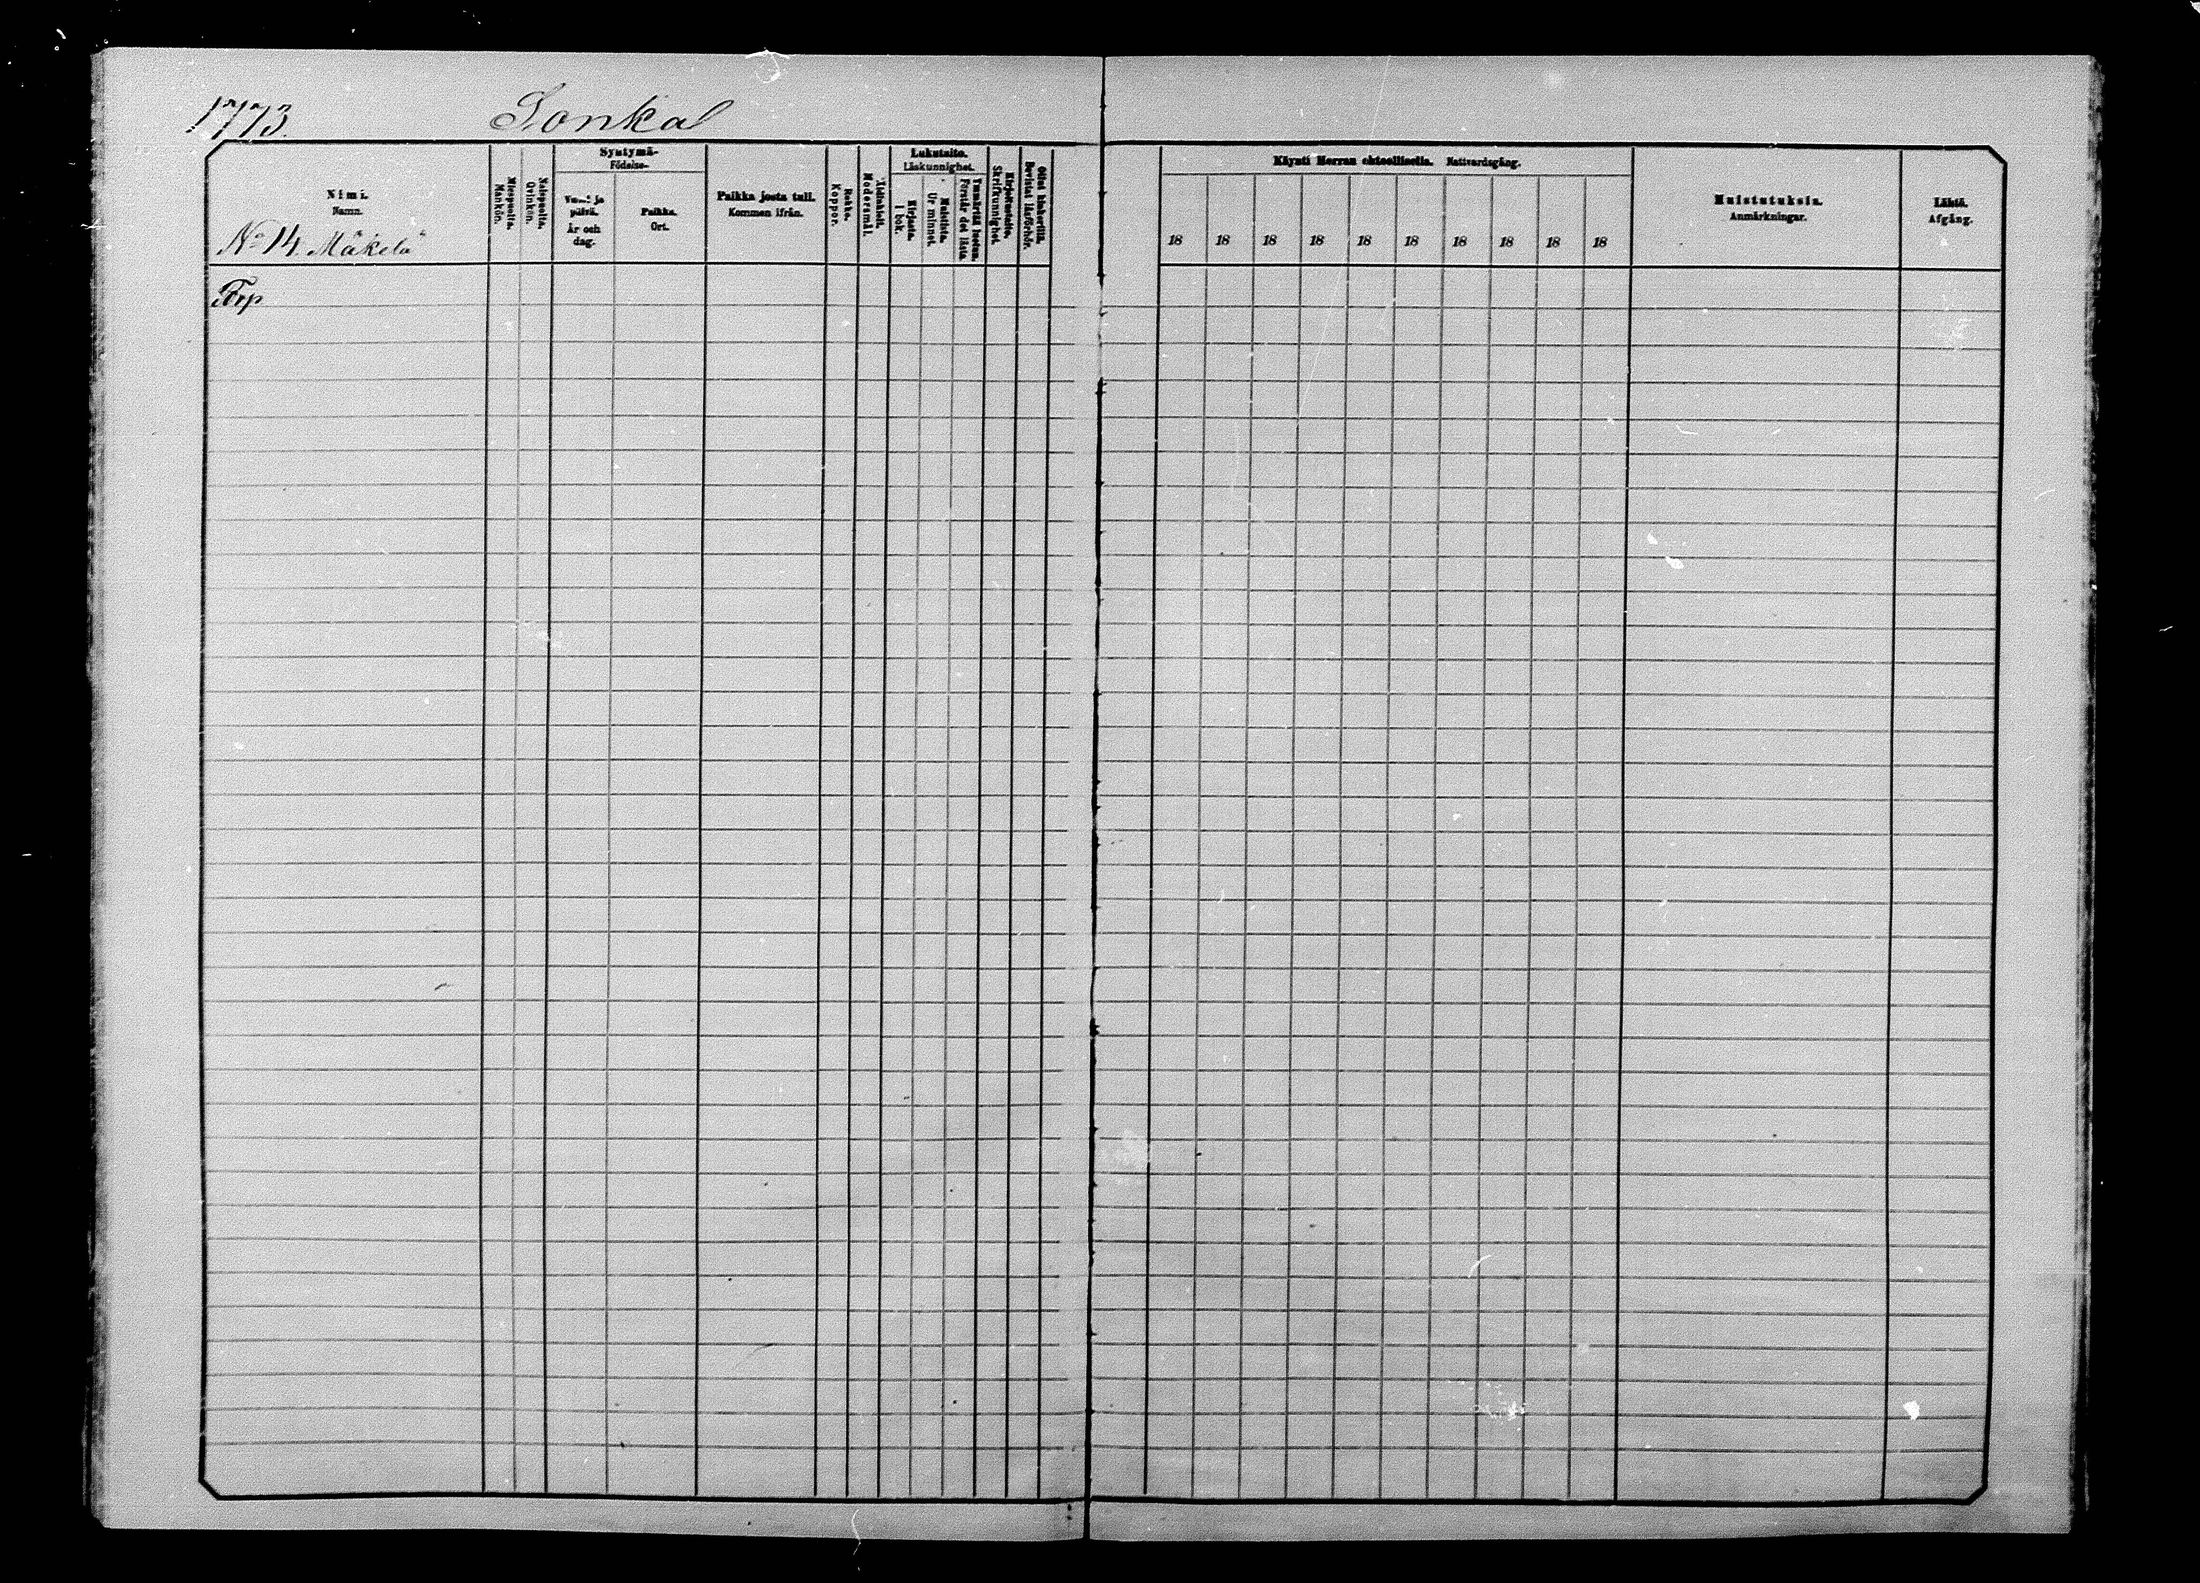 1773. Sonkal
Nimi.
Namn.
No 14. Mäkelä
Torp
Miespuolia.
Mankön.
Naispuolia.
Qvinkön.
Syntymä-
Födelse-
Vuosi ja
päivä.
År och
dag.
Paikka.
Ort.
Paikka josta tull.
Kommen ifrån.
Rokko.
Koppor.
Äidinkieli.
Modersmål.
Lukutaito.
Läskunnighet.
Kirjasta.
I bok.
Muistista.
Ur minnet.
Ymmärtää luetun.
Förstår det lästa.
Kirjoitustaito.
Skrifkunnighet.
Ollut kinkerillä.
Bevistat läsförhör.
Käynti Herran ehtoollisella. Nattvardsgång.
18 18 18 18 18 18 18 18 18 18
Muistutuksia.
Anmärkningar.
Lähtö.
Afgång.